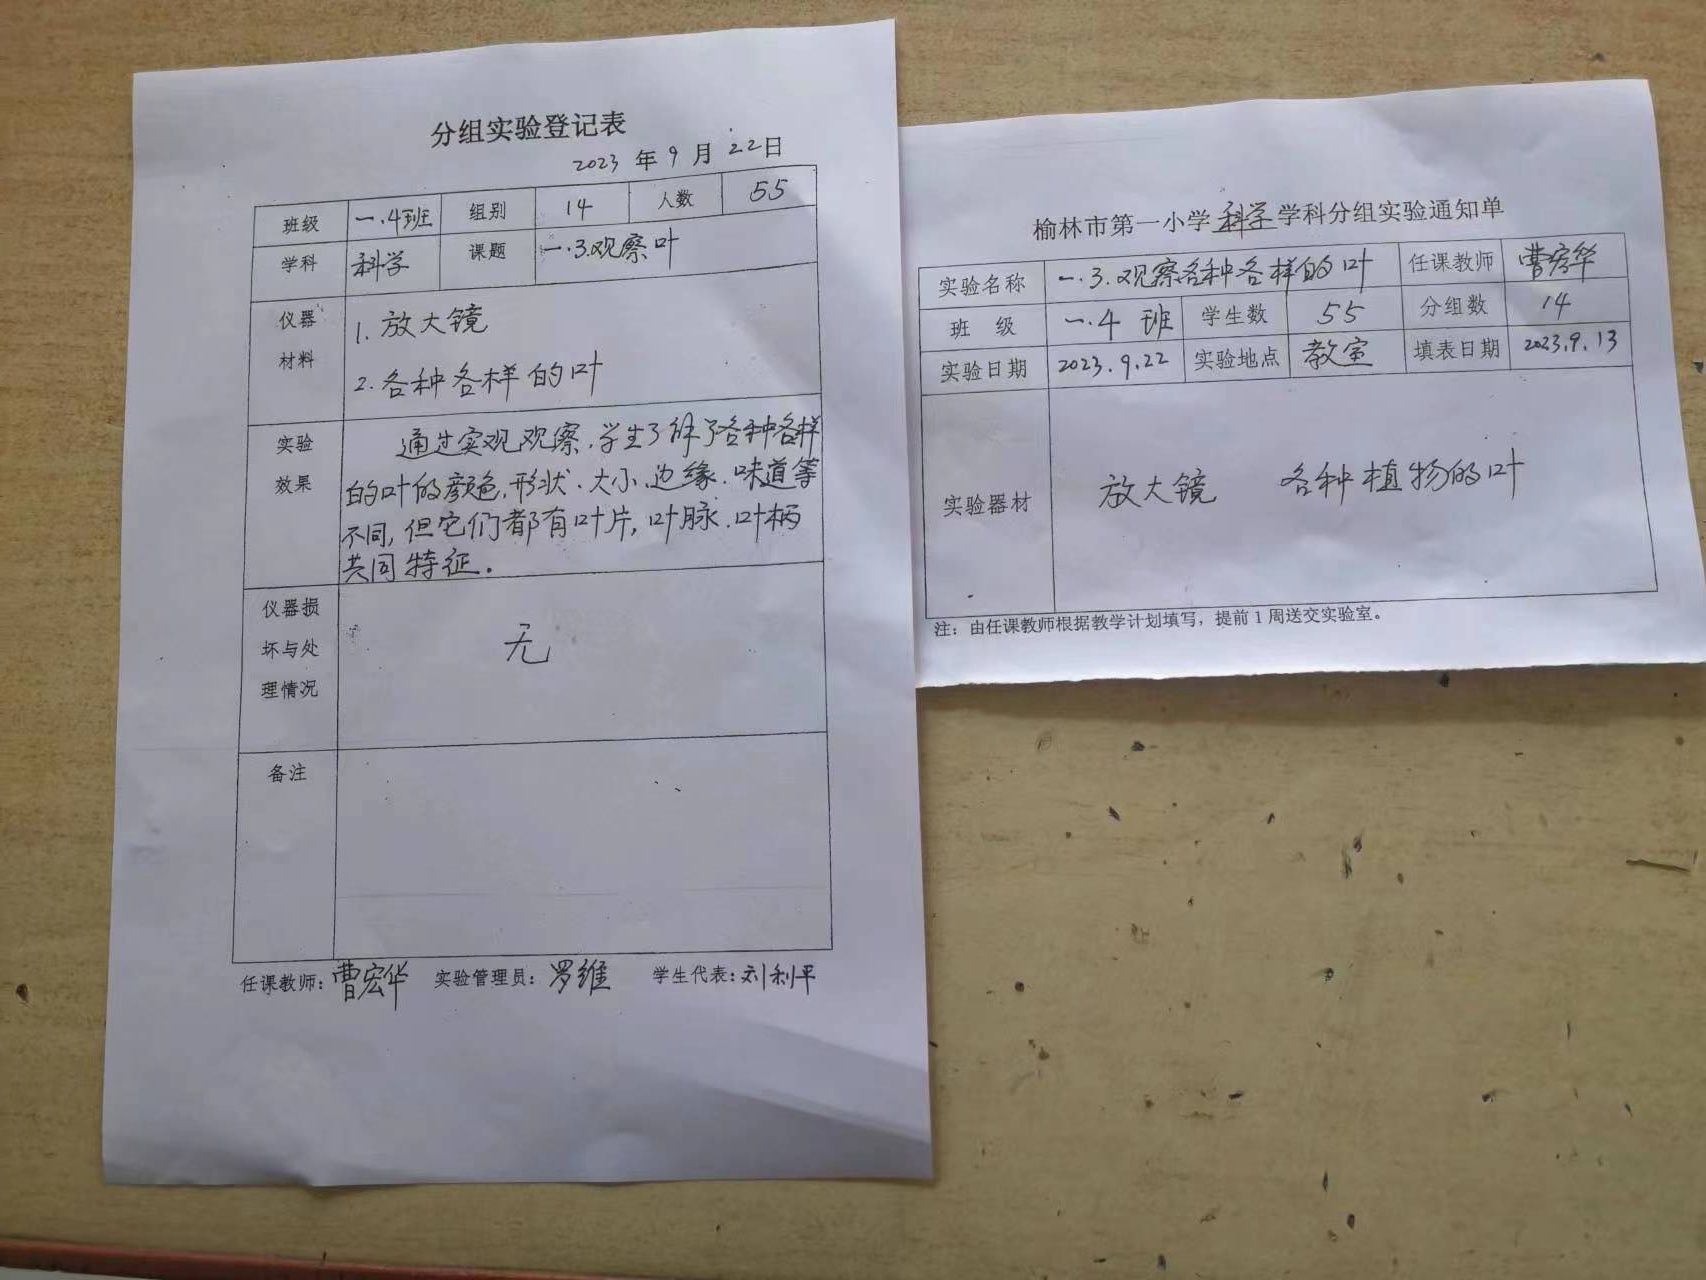 分组实验登记表
2023 年 9 月 22日
班级 一.4班 组别 14 人数 55
学科 科学 课题 一.3.观察叶
仪器
材料
1. 放大镜
2. 各种各样的叶
实验
效果
通过实观观察，学生了解了各种各样
的叶的颜色、形状、大小、边缘、味道等
不同，但它们都有叶片，叶脉、叶柄
共同特征。
仪器损
坏与处
理情况
无
备注
任课教师：曹宏华 实验管理员：罗维 学生代表：刘利平
榆林市第一小学科学学科分组实验通知单
实验名称 一.3.观察各种各样的叶 任课教师 曹宏华
班 级 一.4 班 学生数 55 分组数 14
实验日期 2023.9.22 实验地点 教室 填表日期 2023.9.13
实验器材 放大镜 各种植物的叶
注：由任课教师根据教学计划填写，提前 1 周送交实验室。